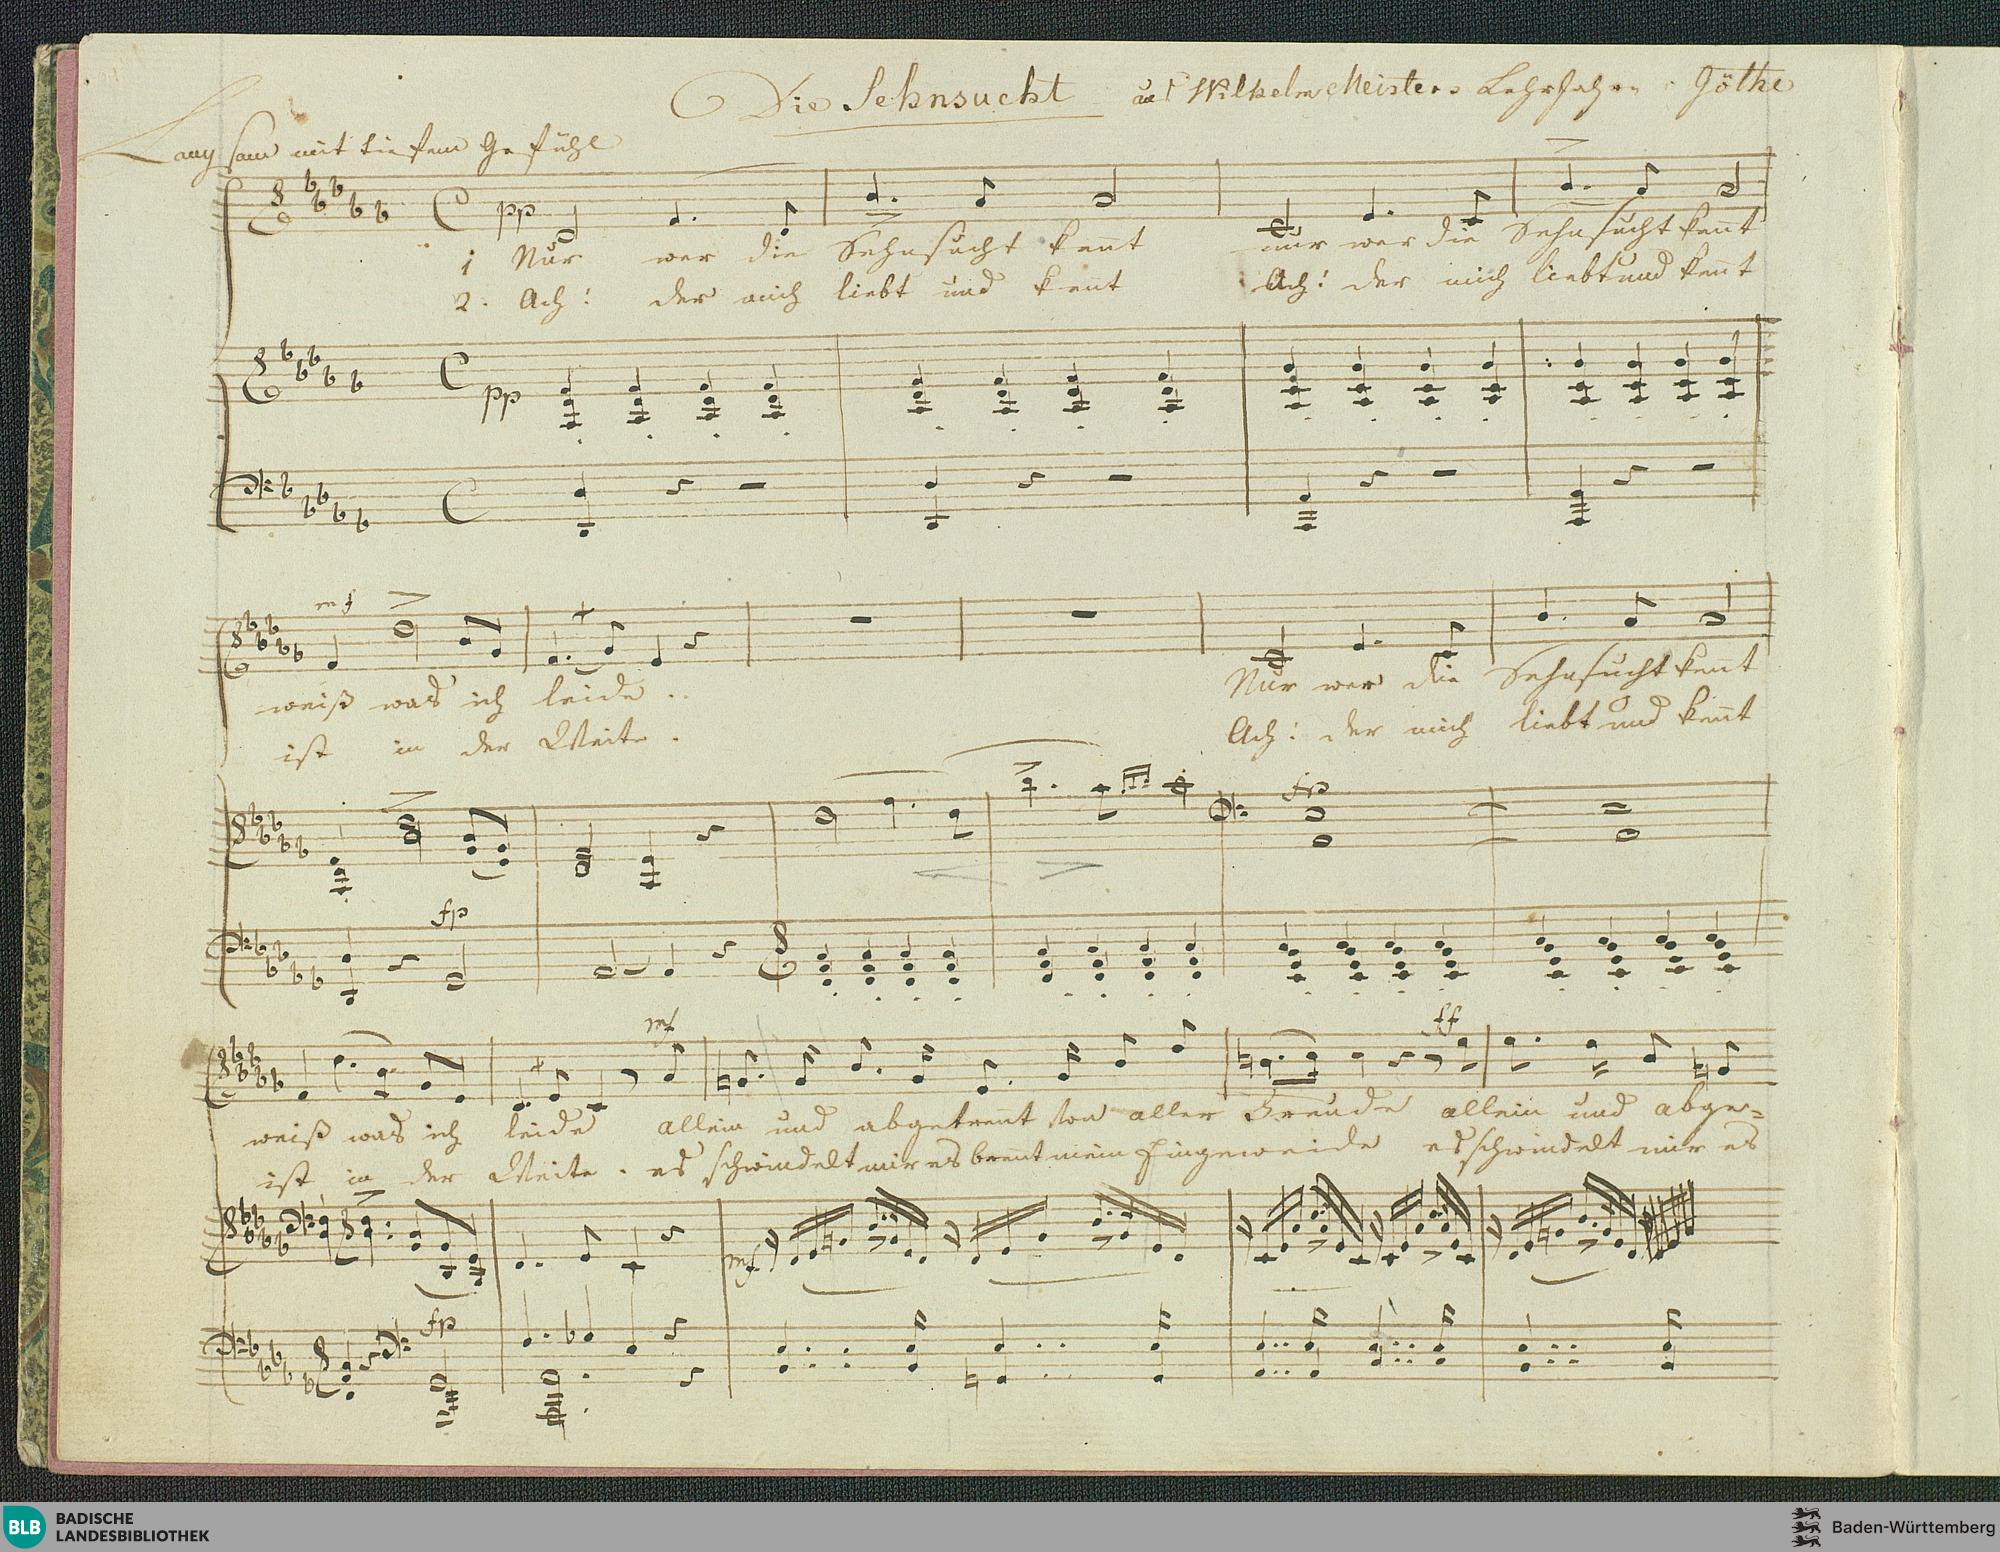 Die Sehnsucht aus Wilhelm Meisters Lehrjahren Göthe
Langsam mit tiefem Gefühl
pp
1 Nur wer die Sehnsucht kennt nur wer die Sehnsucht kennt
2. Ach! der mich liebt und kennt Ach! der mich liebt und kennt
pp
mf
weiß was ich leide ..
Nur wer die Sehnsucht kennt
ist in der Weite .
Ach! der mich liebt und kennt
fp
fp
mf ff
weiß was ich leide allein und abgetrennt von aller Freude allein und abge=
ist in der Weite . es schwindelt mir es brennt mein Eingeweide es schwindelt mir es
mf
fp
BLB BADISCHE LANDESBIBLIOTHEK
Baden-Württemberg